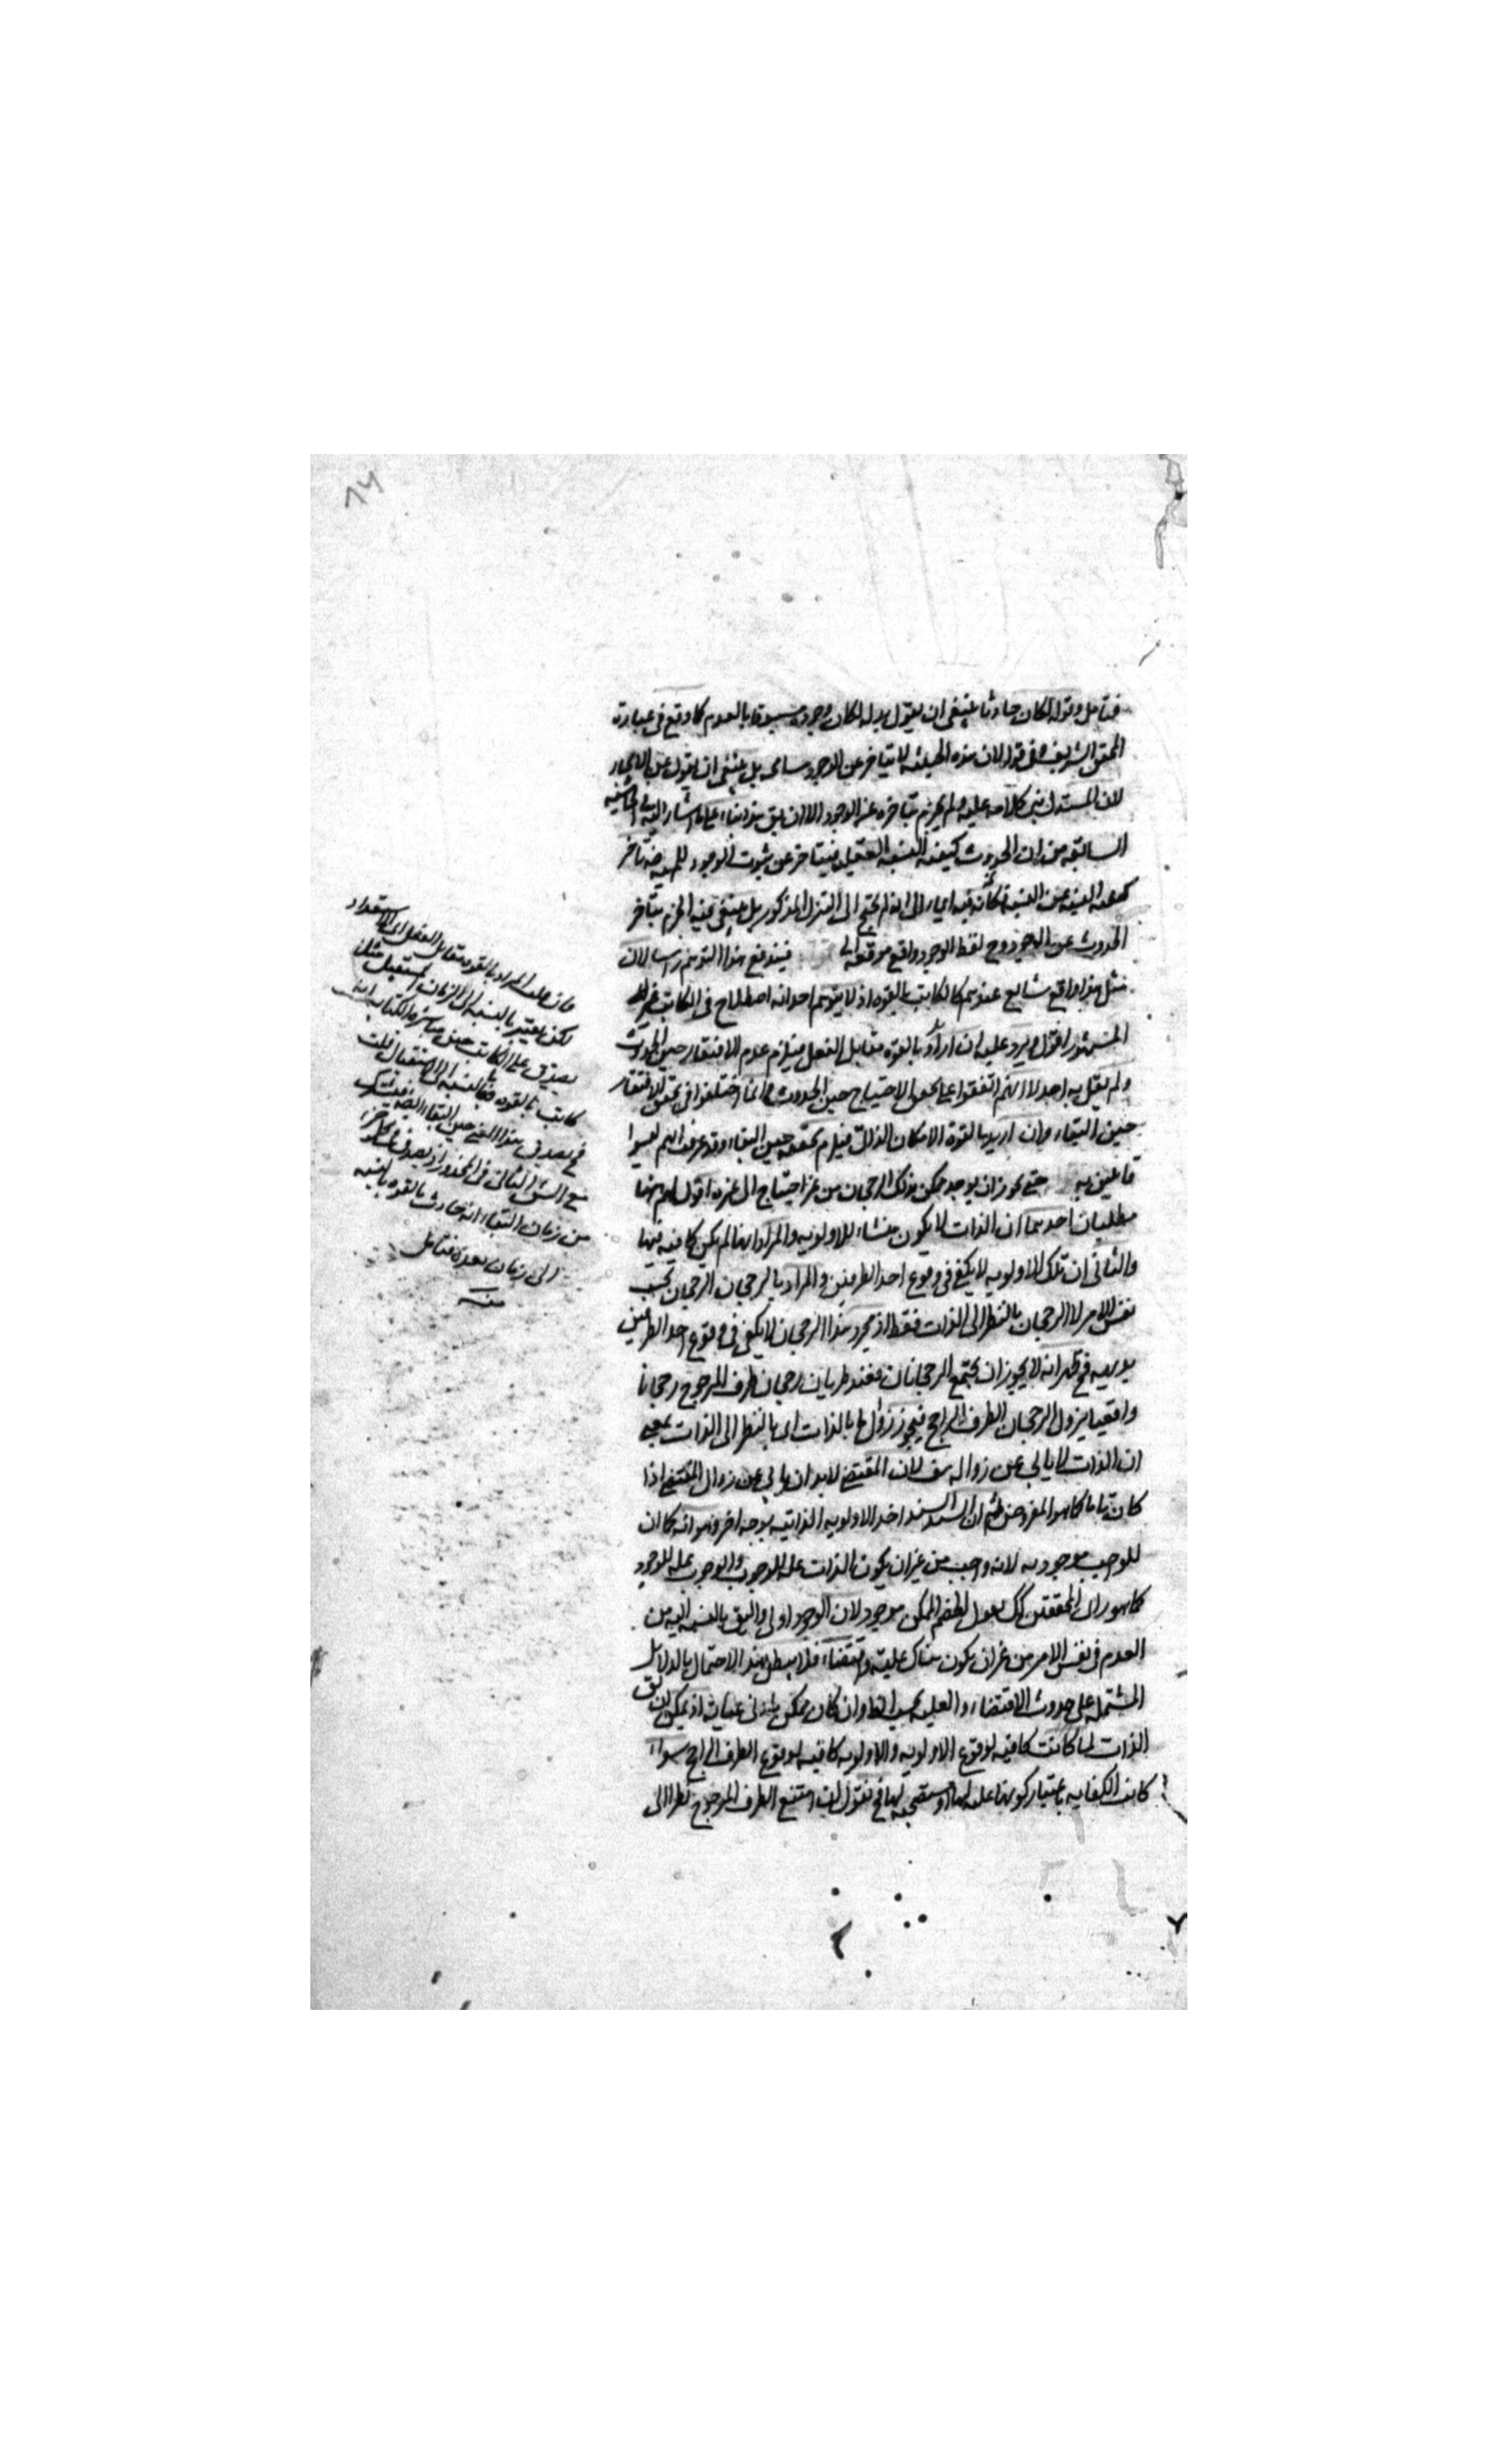 فتأمل وقوله لكان حادثا ينبغى ان يقول بدله لكان وجوده مسبوقا بالعدم كما وقع فى عبارة
المحقق الشريف قوله لان هذه الحيثية لا يتأخر عن الوجود بل ينبغى ان يقول عن الايجاد
لان المستدل بنى كلامه عليه ولم يجزم بتأخره عن الوجود الا ان يق هذا بناء على ما اشار اليه فى الحاشية
السابقة من ان الحدوث كيفية النسبة فيتأخر عن ثبوت الوجود للمهية
النسبة كأنه فيه ايماء الى انه لم يحتج الى التنزل المذكور بل ينبغى فيه الجزم بتأخر
الحدوث عن الوجود وح لفظ الوجود واقع موقعه فيندفع هذا التوهم لان
مثل هذا واقع شايع عندهم كالكاتب بالقوة اذ لا يتوهم احد انه اصطلاح فى الكاتب غير
المشهور اقول ويرد عليه ان اراد بالقوة مقابل الفعل فيلزم عدم الافتقار حين الحدوث
ولم يقل به احد لانهم اتفقوا على تحقق الاحتياج حين الحدوث وانما اختلفوا فى تحقق الافتقار
حين البقاء وان اريد بالقوة الامكان الذاتى فيلزم تحققه حين البقاء وقد عرفت انهم ليسوا
قائلين به حتى يجوز ان يوجد ممكن بذلك الرجحان من غير احتياج الى غيره اقول ههنا
مطلبان احدهما ان الذات لا يكون منشاء للاولوية والمراد انها لم يكن كافية فيها
والثانى ان تلك الاولوية لا يكفى فى وقوع احد الطرفين والمراد بالرجحان الرجحان بحسب
نفس الامر لا الرجحان بالنظر الى الذات فقط اذ مجرد هذا الرجحان لا يكفى فى وقوع احد الطرفين
بديهة فح ظهر انه لا يجوز ان يجتمع الرجحانان فعند طريان رجحان طرف المرجوح رجحانا
واقعيا يزول الرجحان الطرف الراجح فيجوز زوالها بالذات اى بالنظر الى الذات بمعنى
ان الذات لا يأبى عن زواله هف لان المقتضى لابد ان يأبى عن زوال المقتضى اذا
كان تاما كما هو المفروض ثم ان السيد السند اخذ الاولوية الذاتية بوجه اخر وهو انه كما ان
للوجب موجود لانه واجب من غير ان يكون الذات علة للوجوب والوجوب علة للوجود
كما هو راى المحققين كك يقول الخصم الممكن موجود لان الوجود اولى واليق بالنسبة اليه من
العدم فى نفس الامر من غير ان يكون هناك علية واقتضاء فلا يبطل هذا الاحتمال بالدلايل
المشتملة على حدوث الاقتضاء والعلية بحسب الظ وان كان يمكن بادنى عناية اذ يمكن ان يق
الذات لما كانت كافية لوقوع الاولوية والاولوية كافية لوقوع الطرف الراجح سواء
كانت الكفاية باعتبار كونها علة لها او مقتضية لها فح نقول ان امتنع الطرف المرجوح نظرا الى
فان قلت المراد بالقوة مقابل الفعل اى الاستعداد
لكن يعتبر بالنسبة الى الزمان المستقبل مثلا
يصدق على الكاتب حين مباشرة الكتابة انه
كاتب بالقوة بالنسبة الى الاستقبال قلت
فح يصدق هذا المعنى حين البقاء
مع الشق الثانى فى المحذور اذ يصدق فى كل جزء
من زمان البقاء انه حادث بالقوة بالنسبة
الى زمان بعده فتأمل
منه